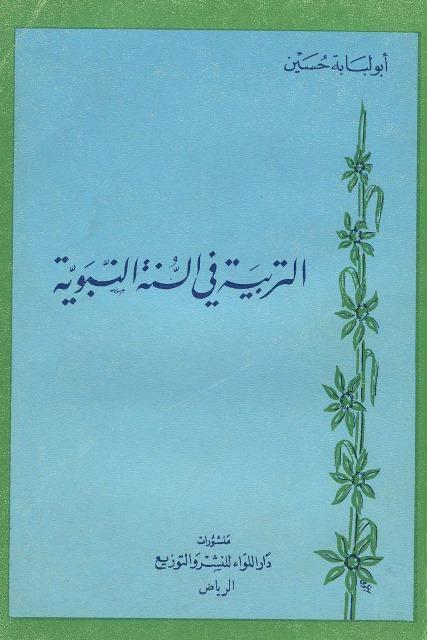 أبو لبابة حسين
التربية في السنة النبوية
منشورات
دار اللواء للنشر والتوزيع
الرياض